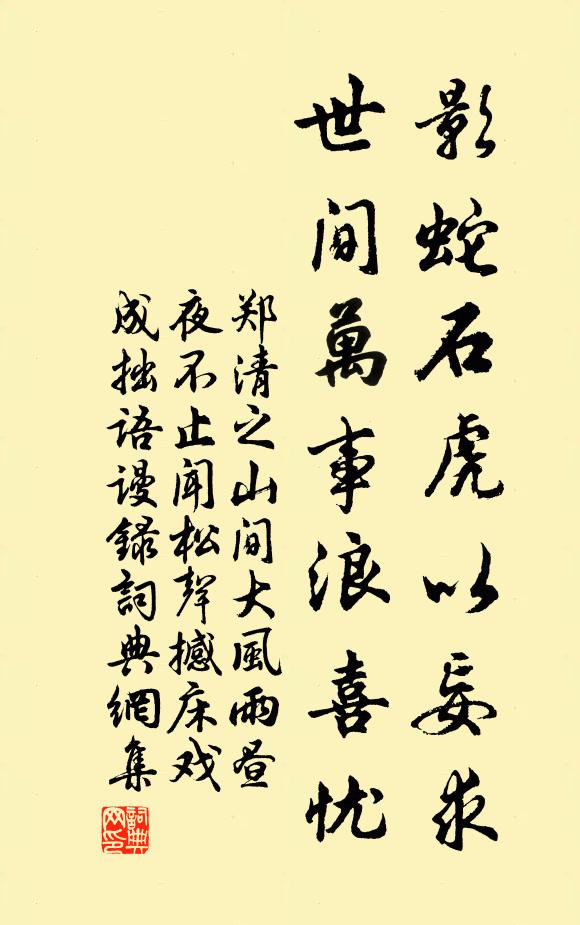 影蛇石虎以妄求
世间萬事浪喜忧
郑清之山间大風雨昼
夜不止闻松聲撼床戏
成拙语谩錄詞典網集
詞典
网印